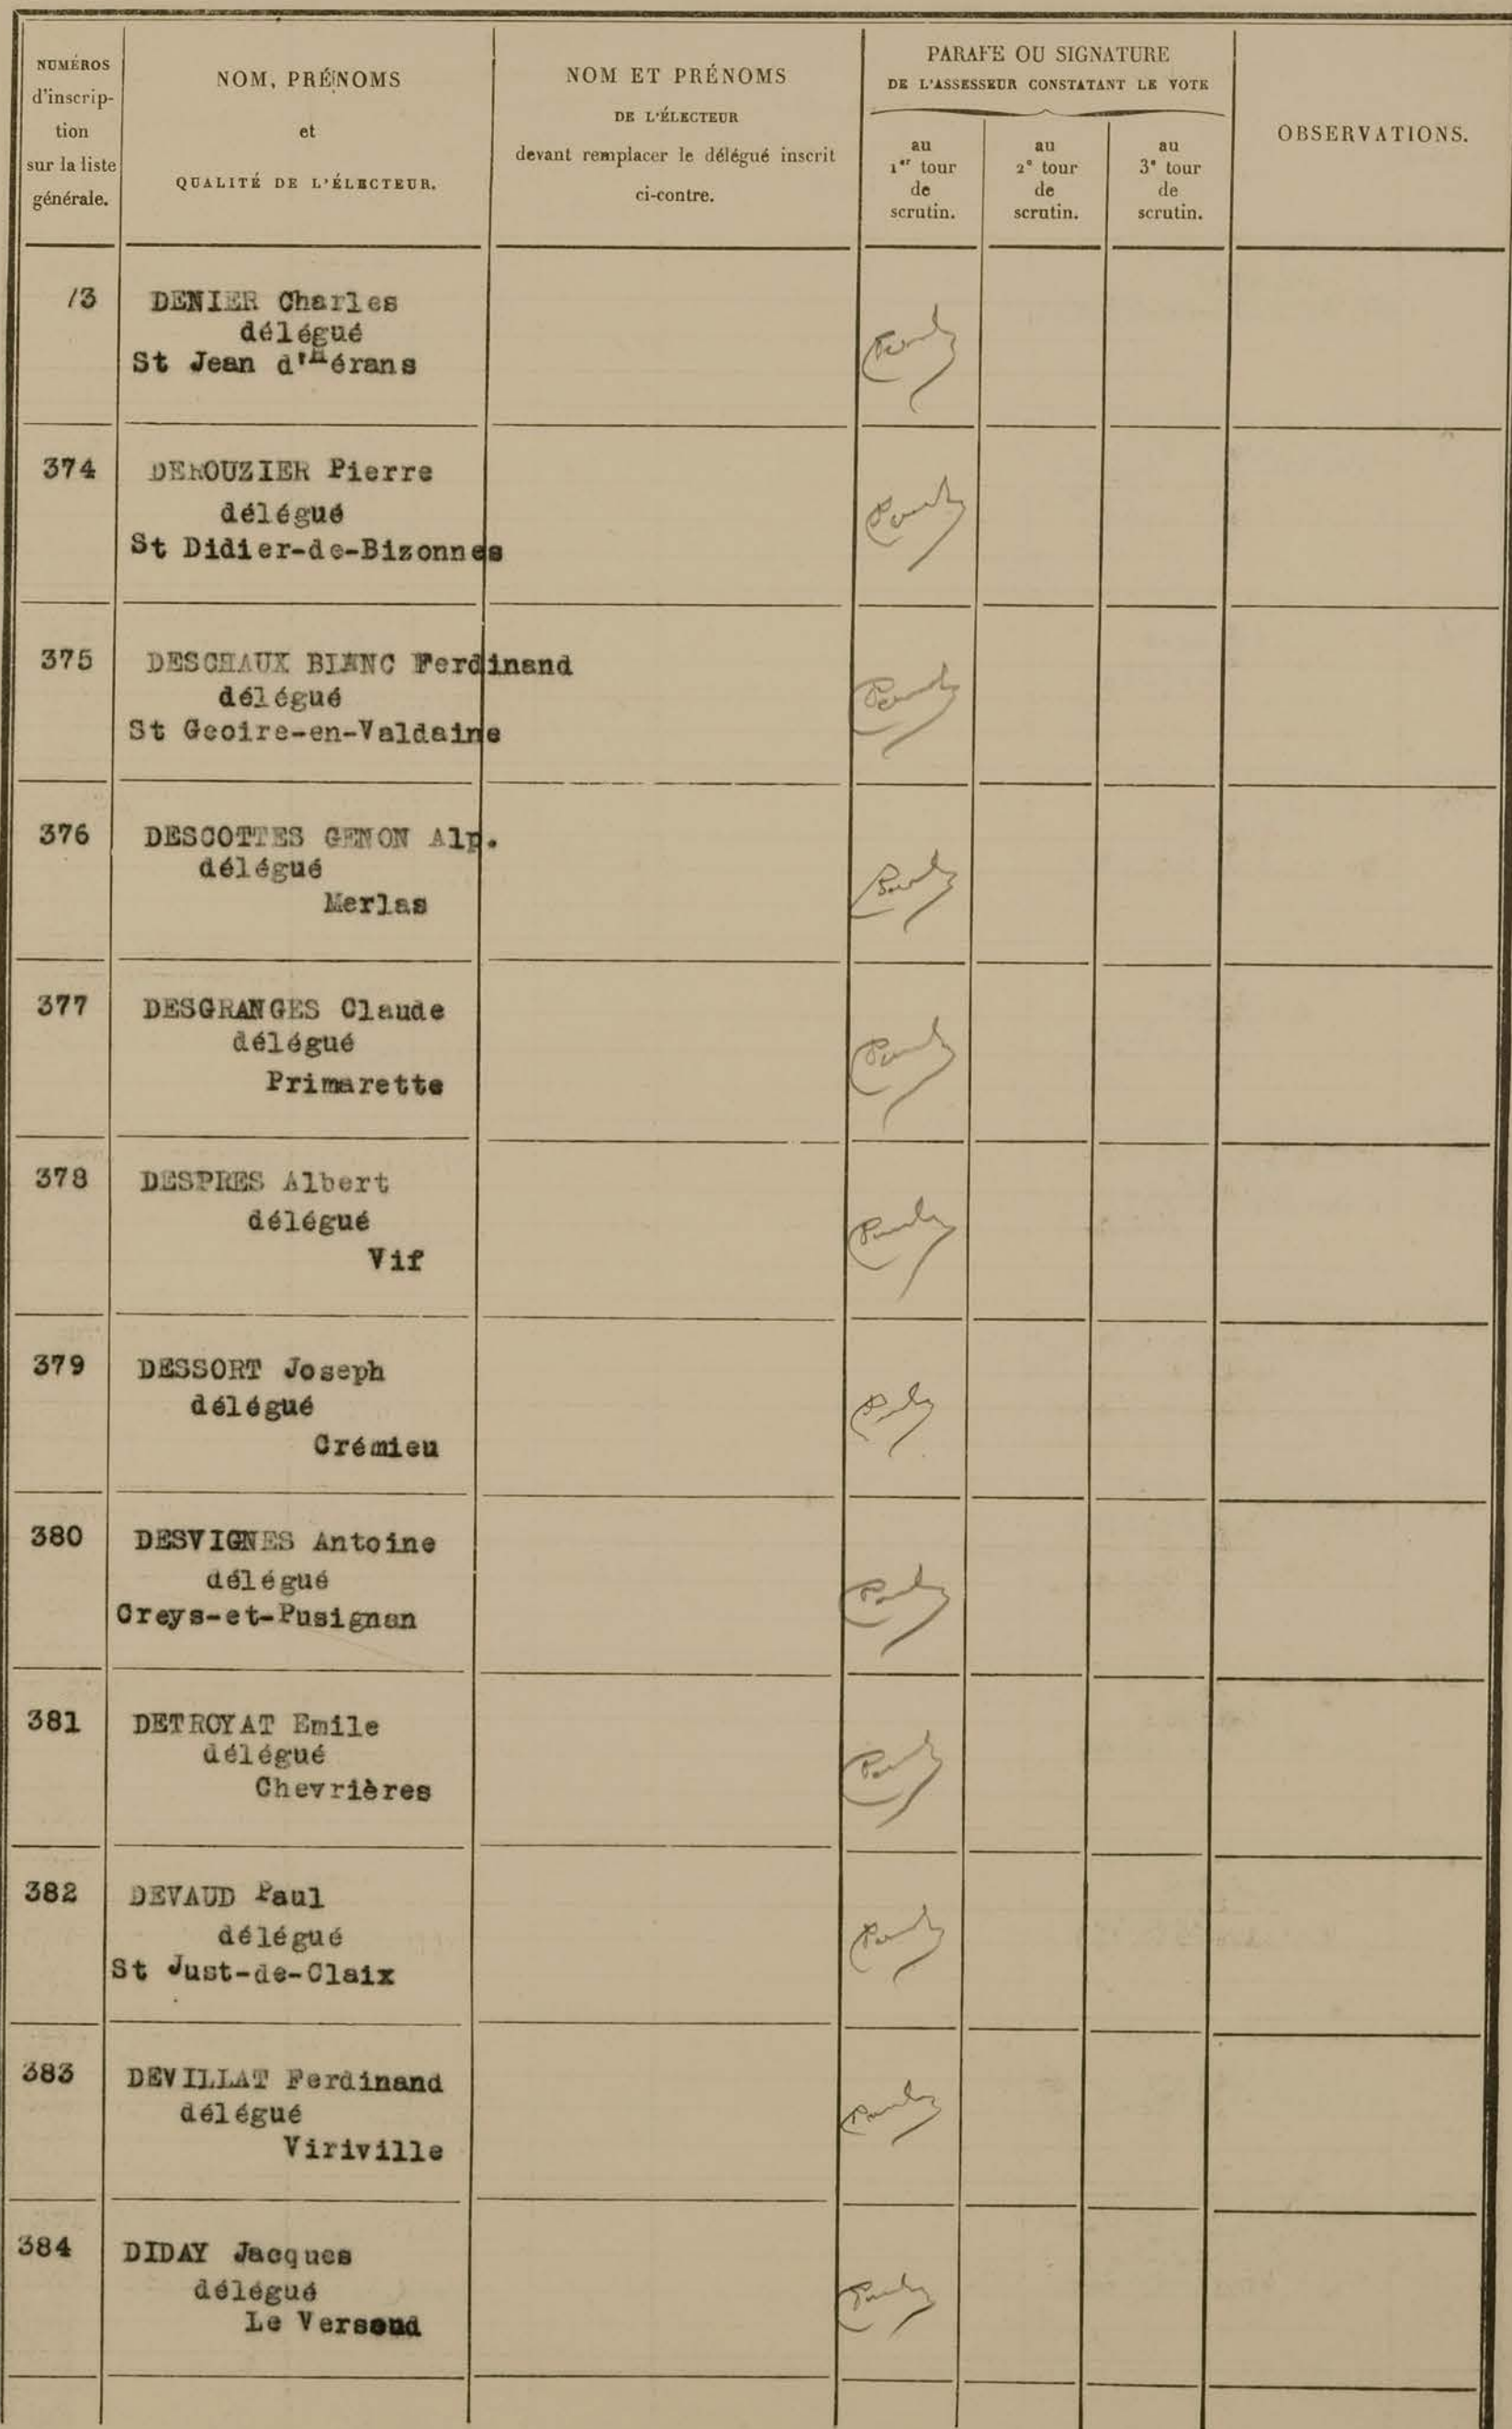 NUMÉROS
d'inscrip-
tion
sur la liste
générale.
NOM, PRÉNOMS
et
QUALITÉ DE L'ÉLECTEUR.
NOM ET PRÉNOMS
DE L'ÉLECTEUR
devant remplacer le délégué inscrit
ci-contre.
PARAFE OU SIGNATURE
DE L'ASSESSEUR CONSTATANT LE VOTE
au
1er tour
de
scrutin.
au
2e tour
de
scrutin.
au
3e tour
de
scrutin.
OBSERVATIONS.
73 DENIER Charles
délégué
St Jean d'Hérans
374 DEROUZIER Pierre
délégué
St Didier-de-Bizonnes
375 DESCHAUX BLANC Ferdinand
délégué
St Geoire-en-Valdaine
376 DESCOTTES GENON Alp.
délégué
Merlas
377 DESGRANGES Claude
délégué
Primarette
378 DESPRES Albert
délégué
Vif
379 DESSORT Joseph
délégué
Crémieu
380 DESVIGNES Antoine
délégué
Creys-et-Pusignan
381 DETROYAT Emile
délégué
Chevrières
382 DEVAUD Paul
délégué
St Just-de-Claix
383 DEVILLAT Ferdinand
délégué
Viriville
384 DIDAY Jacques
délégué
Le Versoud